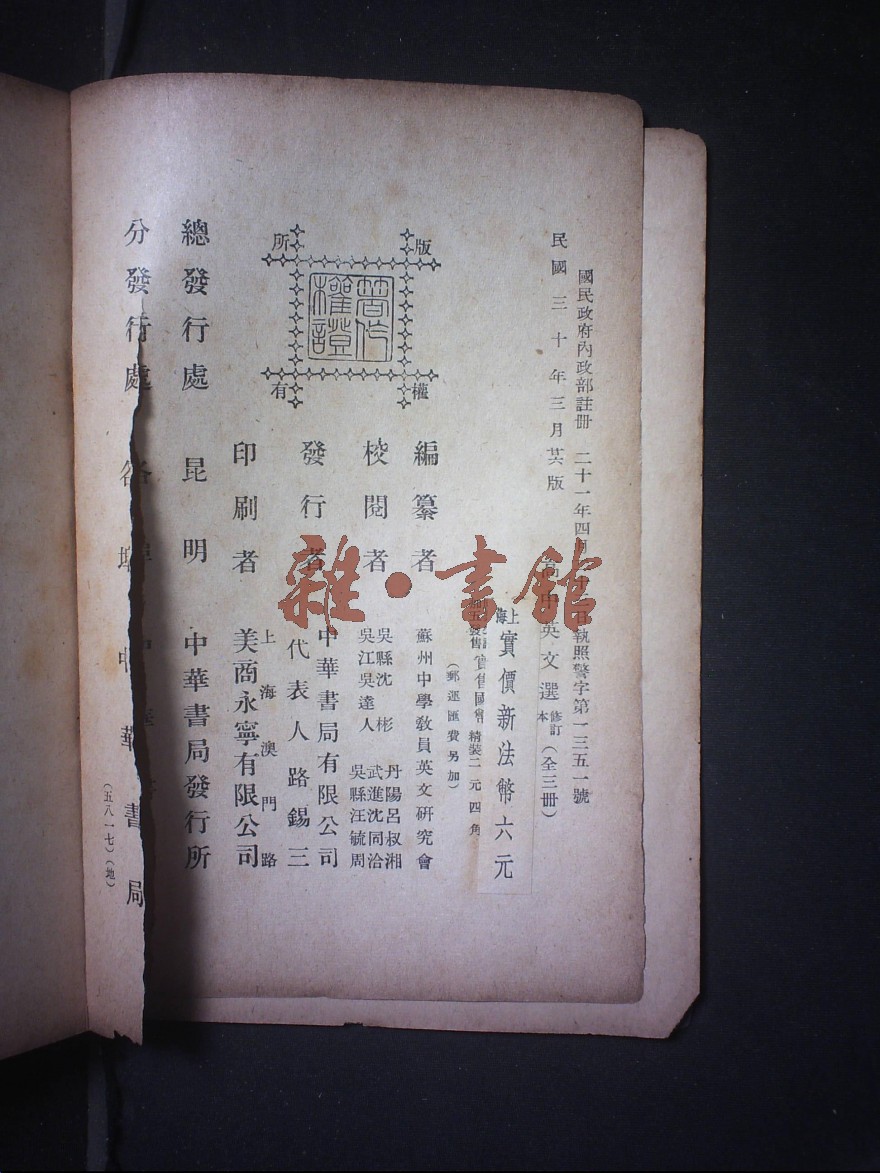 國民政府內政部註冊 二十一年四月 日執照警字第一三五一號
民國三十年三月 版
高中英文選 修訂本 (全三冊)
上海 實價新法幣六元
實售國幣 精裝二元四角
(郵運匯費另加)
版權所有
著作權證
編纂者 蘇州中學教員英文研究會
校閱者 吳縣沈彬 丹陽呂叔湘
吳江吳達人 武進沈同洽
吳縣汪毓周
發行者 中華書局有限公司
代表人路錫三
印刷者 上海澳門路
美商永寧有限公司
總發行處 昆明 中華書局發行所
分發行處 各埠中華書局
(五八一七)(地)
雜·書館